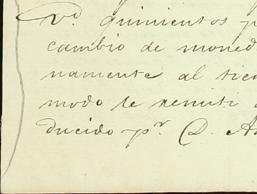 Vº. quinientos p
cambio de moned
namente al tiem
modo te remiti
ducido pʳ. D. A